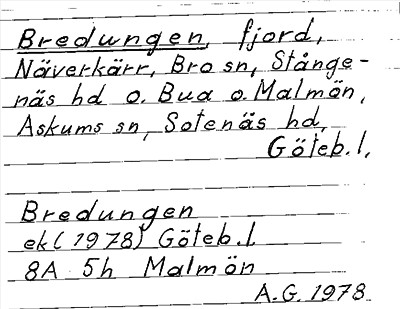 Bredungen, fjord,
Näverkärr, Bro sn, Stånge-
näs hd o. Bua o. Malmön,
Askums sn, Sotenäs hd,
Göteb. l.
Bredungen
ek (1978) Göteb. l.
8A 5h Malmön
A.G. 1978